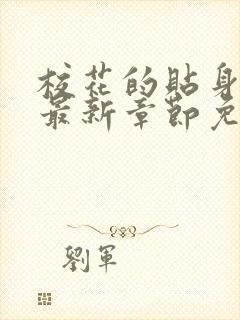 校花的貼身
最新章節免
劉軍